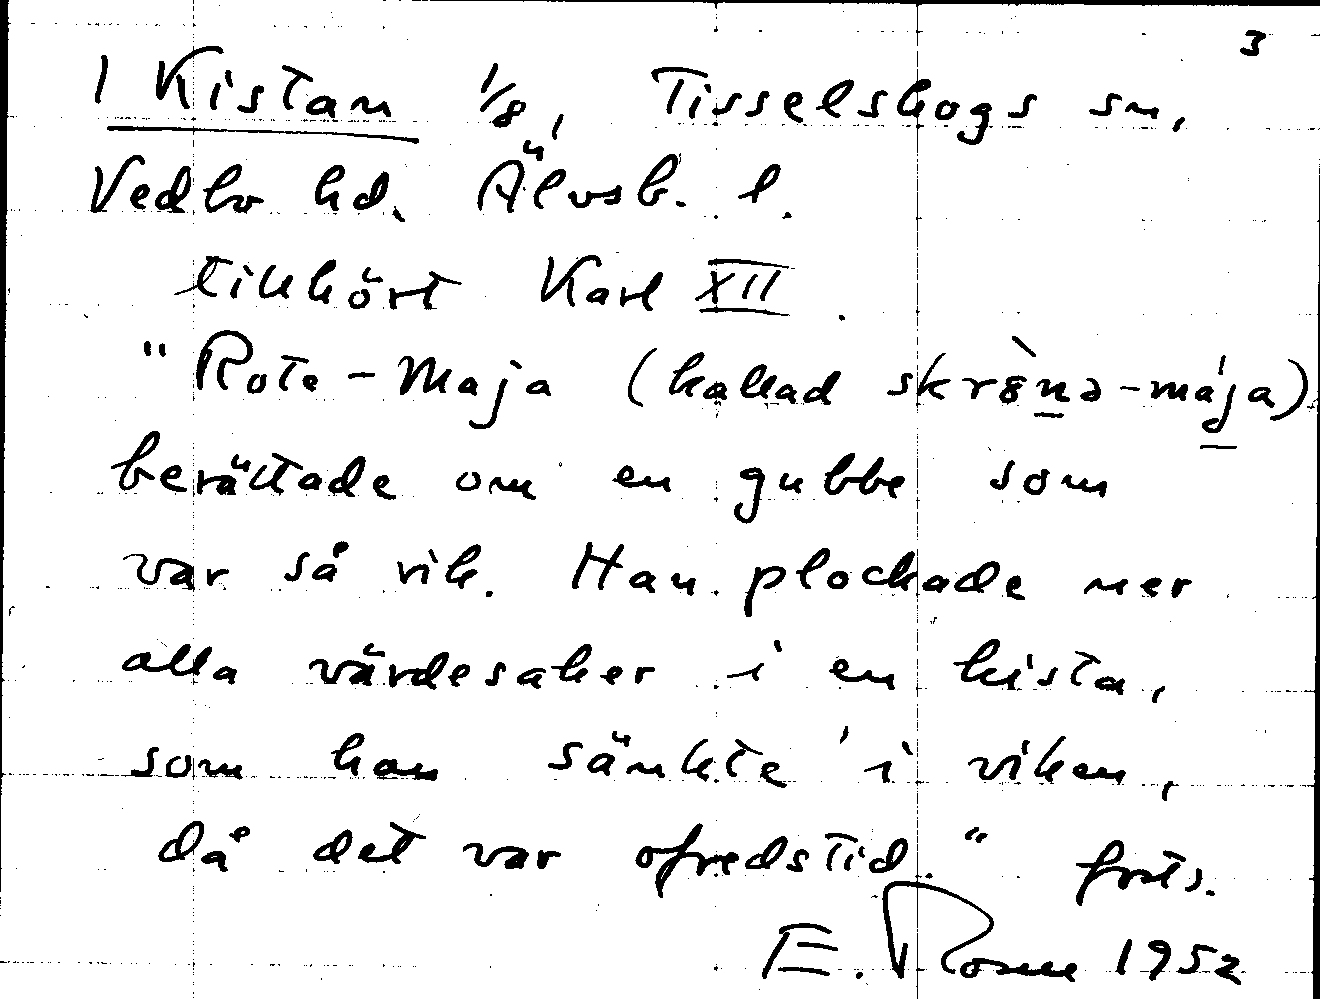 3
1 Kistan 1/8, Tisselskogs sn,
Vedbo hd. Älvsb. l.
tillhört Karl XII.
"Rote-Maja (kallad skrönə-mája)
berättade om en gubbe som
var så rik. Han plockade ner
alla värdesaker i en kista,
som han sänkte i viken,
då det var ofredstid." forts.
E. Rosne 1952